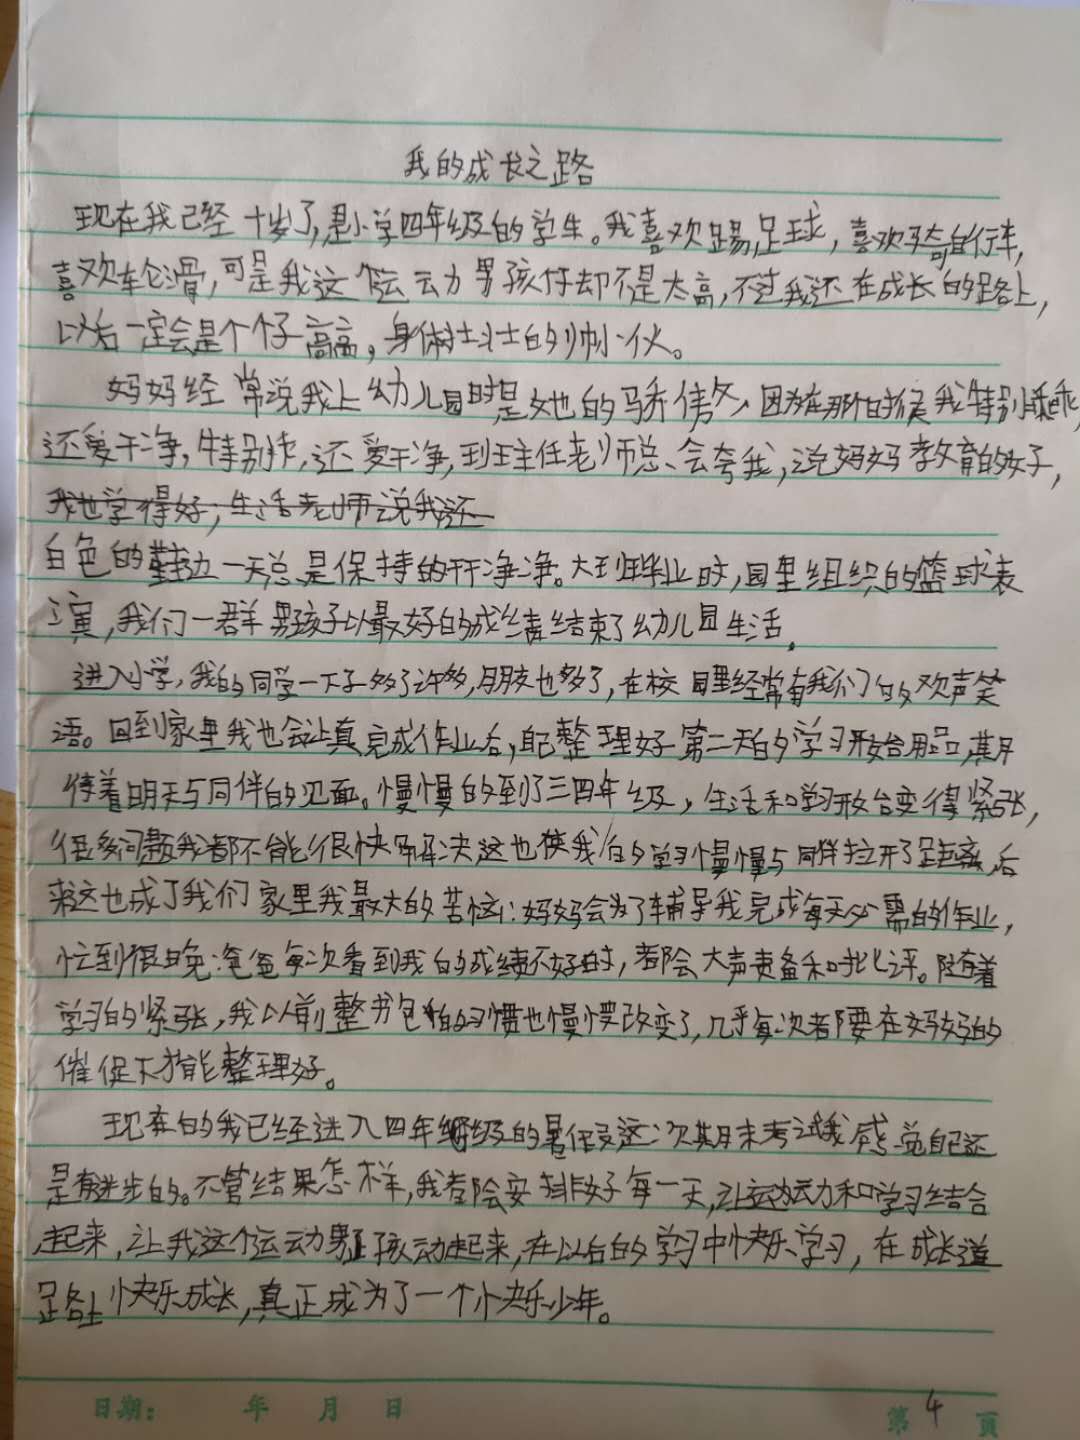 我的成长之路
现在我已经十岁了,是小学四年级的学生。我喜欢踢足球,喜欢骑自行车,
喜欢轮滑,可是我这个运动男孩仔却不是太高,不过我还在成长的路上,
以后一定会是个个子高高,身体壮壮的帅小伙。
妈妈经常说我上幼儿园时是她的骄傲,因为在那个时候我特别乖乖,
还爱干净,特别忙,还爱干净,到班主任老师总会夸我,说妈妈教育的好,
我也学得好,生活老师说我还
白色的鞋边一天总是保持的干干净净。大班毕业时,园里组织的篮球表
演,我们一群男孩子以最好的成绩结束了幼儿园生活。
进入小学,我的同学一下子多了许多,朋友也多了,在校园里经常有我们的欢声笑
语。回到家里我也会认真完成作业后,自己整理好第二天的学习开始用品,期
待着明天与同伴的见面。慢慢的到了三四年级,生活和学习开始变得紧张,
很多问题我都不能很快解决这也使我的学习慢慢与同伴拉开了距离,后
来这也成了我们家里我最大的苦恼:妈妈会为了辅导我完成每天必需的作业,
忙到很晚;爸爸每次看到我的成绩不好时,都会大声责备和批评。随着
学习的紧张,我以前整书包的习惯也慢慢改变了,几乎每次都要在妈妈的
催促下才能整理好。
现在的我已经进入四年级的暑假这次期末考试我感觉自己还
是有进步的。不管结果怎样,我都会安排好每一天,让运动和学习结合
起来,让我这个运动男孩动起来,在以后的学习中快乐学习,在成长道
路上快乐成长,真正成为了一个快乐少年。
日期: 年 月 日
第4页